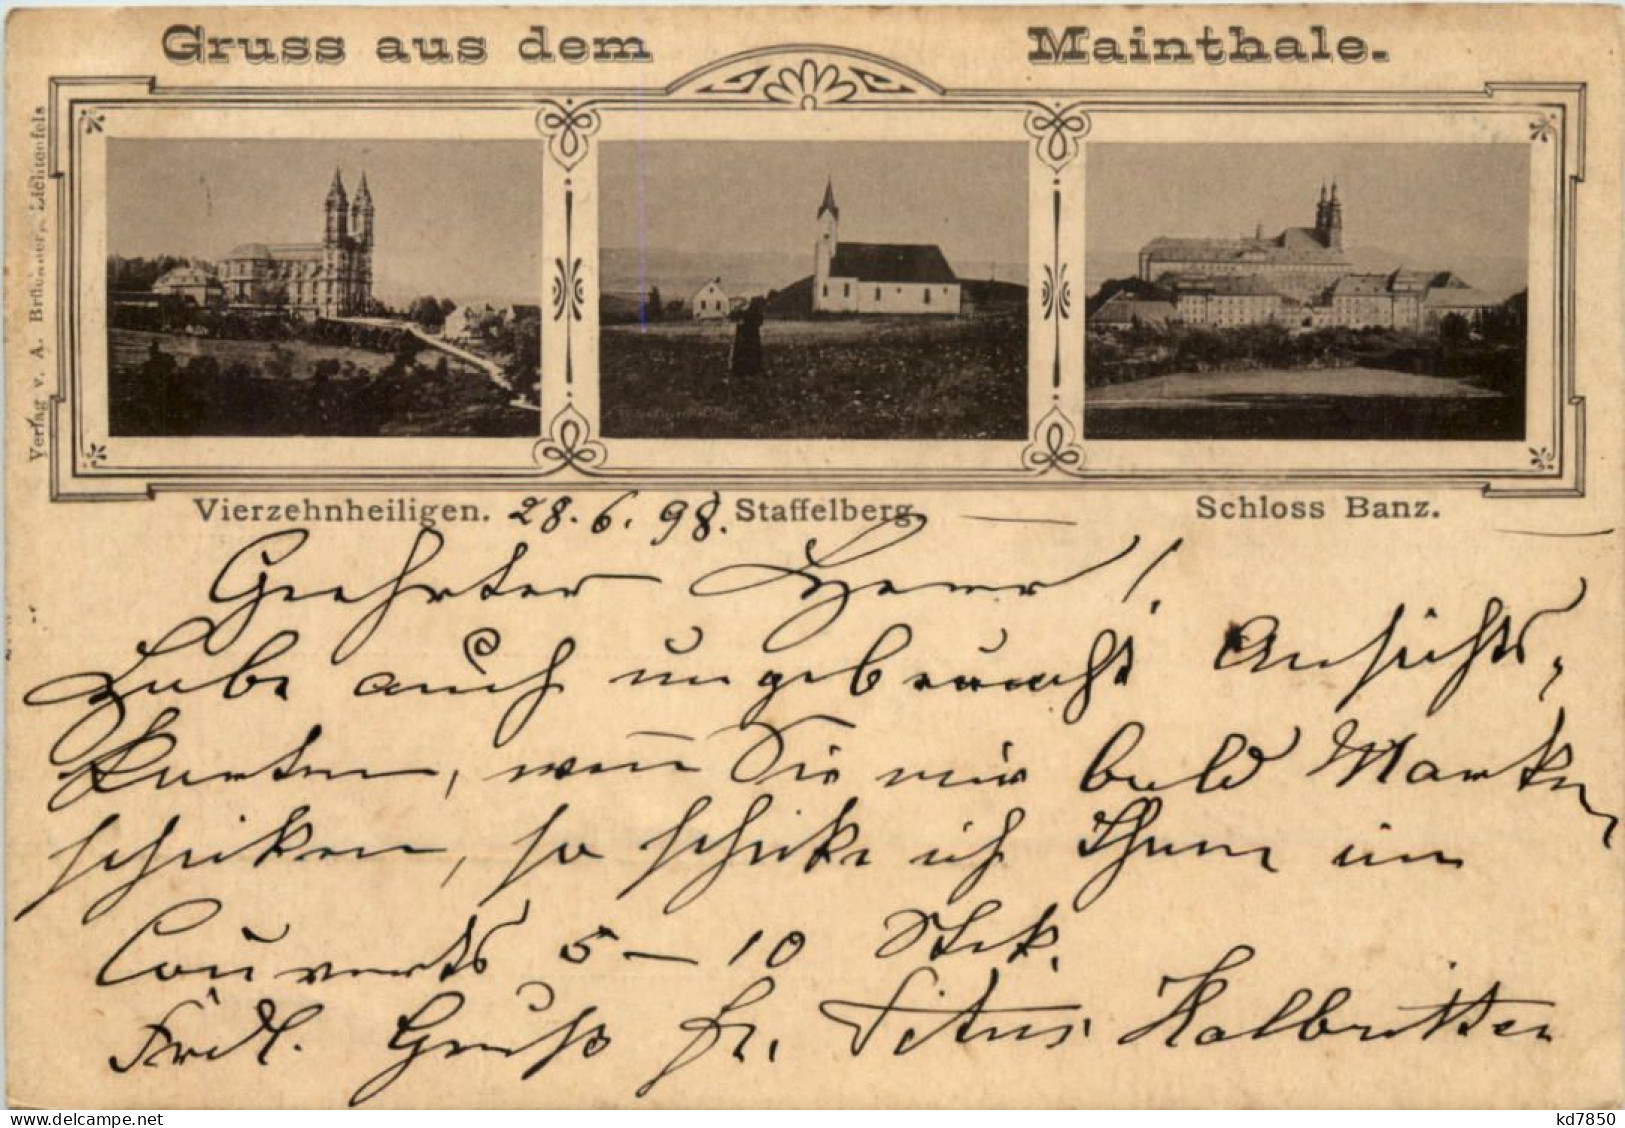 Gruss aus dem Mainthale.
Verlag v. A. Brückner, Lichtenfels
Vierzehnheiligen. 28.6.98. Staffelberg. Schloss Banz.
Geehrter Herr!
Habe auch ungebraucht Ansichts-
karten, wen̄ Sie mir bald Marken
schicken, so schicke ich Ihnen im
Couverts 5–10 Stck.
Frdl. Gruß Fr. Titus Halbritter
www.delcampe.net
kd7850